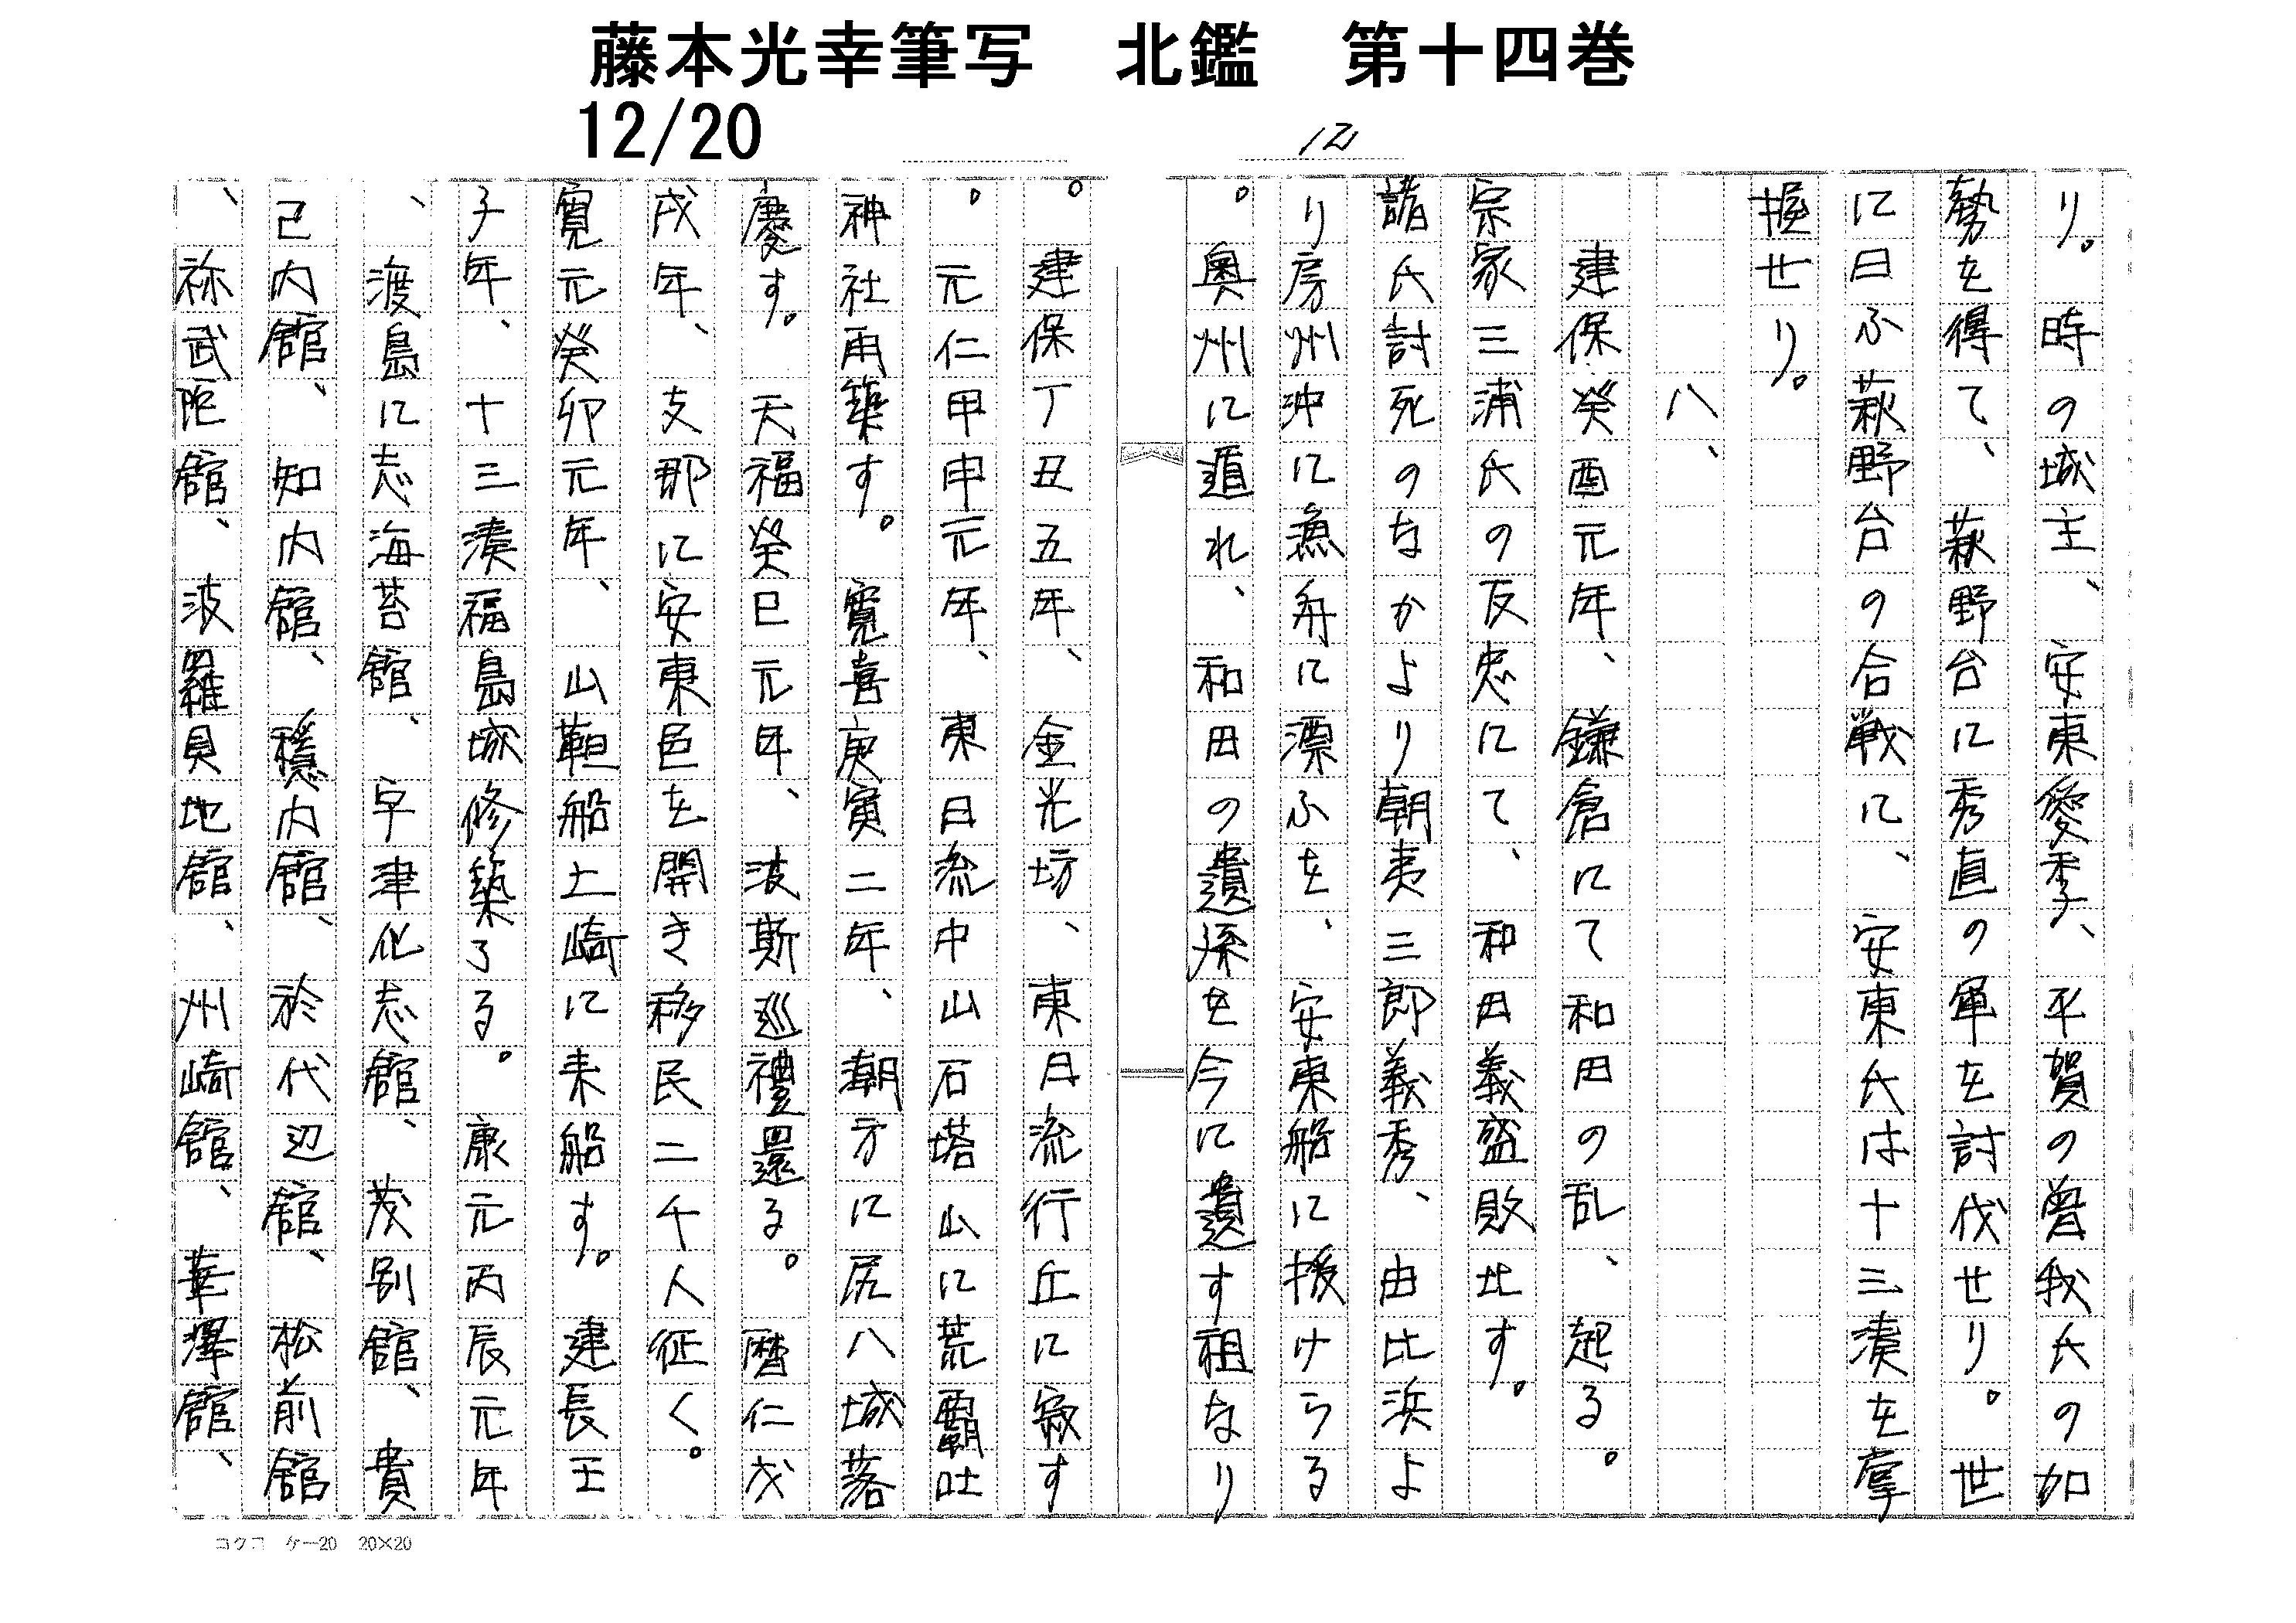 藤本光幸筆写　北鑑　第十四巻
12/20
12
り。時の城主、安東愛季、平賀の曽我氏の加
勢を得て、萩野台に秀直の軍を討伐せり。世
に曰ふ萩野台の合戦に、安東氏は十三湊を掌
握せり。
八、
建保癸酉元年、鎌倉にて和田の乱、起る。
宗家三浦氏の反忠にて、和田義盛敗北す。
諸氏討死のなかより朝夷三郎義秀、由比浜よ
り房州沖に漁舟に漂ふを、安東船に援けらる
。奥州に遁れ、和田の遺孫を今に遺す祖なり
。建保丁丑五年、金光坊、東日流行丘に寂す
。元仁甲申元年、東日流中山石塔山に荒覇吐
神社再築す。寛喜庚寅二年、潮方に尻八城落
慶す。天福癸巳元年、波斯巡禮還る。暦仁戊
戌年、支那に安東邑を開き移民二千人征く。
寛元癸卯元年、山靼船土崎に来船す。建長壬
子年、十三湊福島城修築了る。康元丙辰元年
、渡島に志海苔館、宇津化志館、茂別館、貴
己内館、知内館、穏内館、於代辺館、松前館
、祢武陀館、波羅貝地館、州崎館、華澤館、
コクヨ　ケー20　20×20